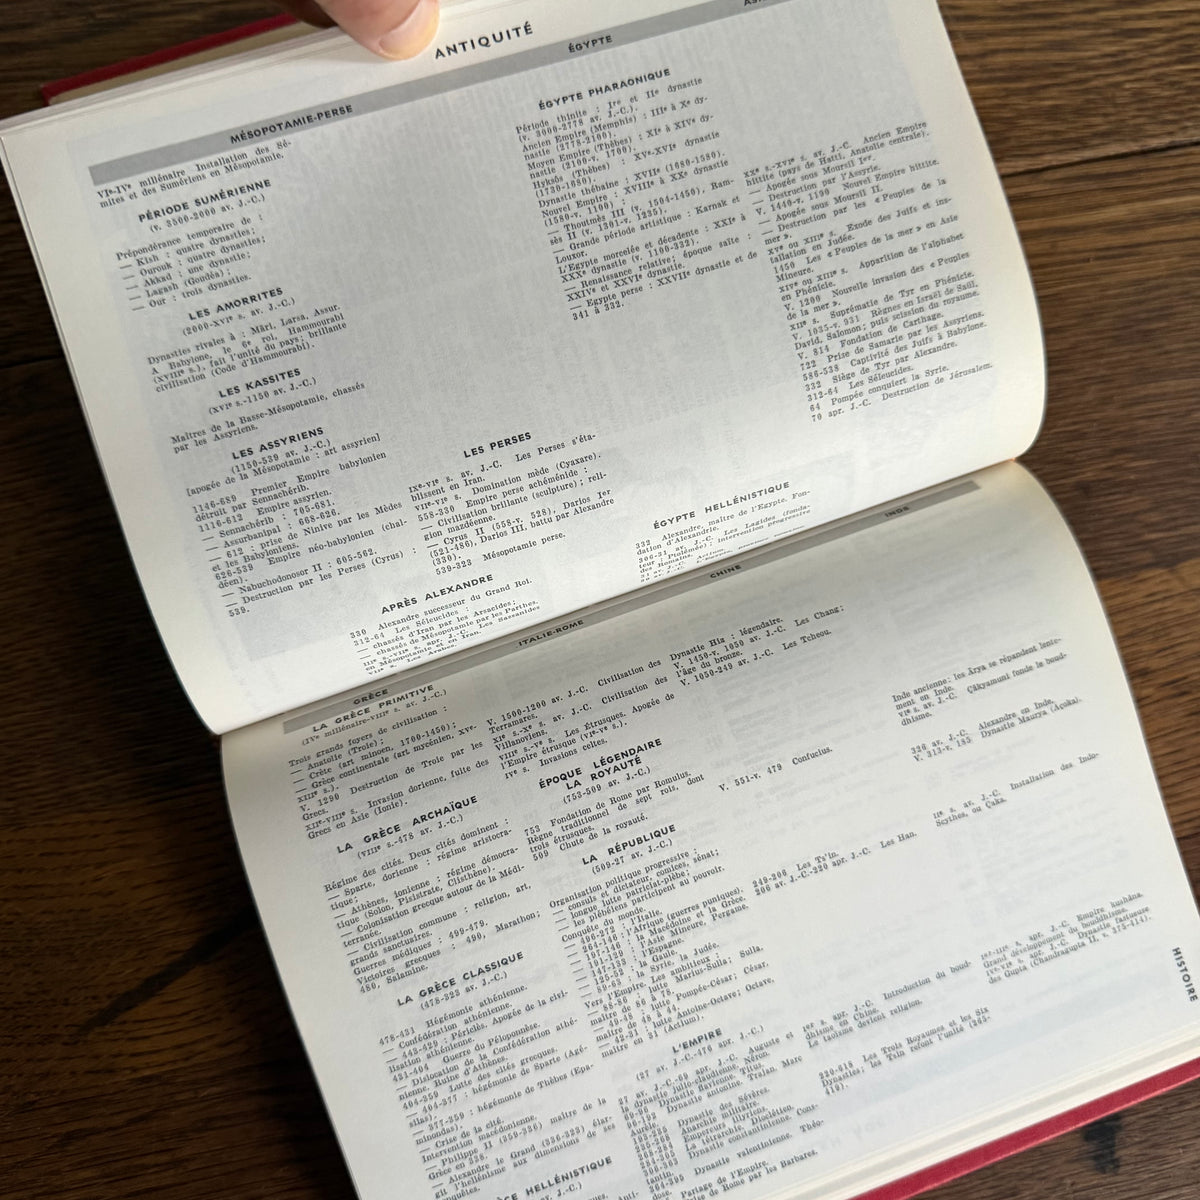 ANTIQUITÉ
MÉSOPOTAMIE-PERSE
VIe-IVe millénaire Installation des Sé-
mites et des Sumériens en Mésopotamie.
PÉRIODE SUMÉRIENNE
(v. 3500-2000 av. J.-C.)
Prépondérance temporaire de :
— Kish : quatre dynasties;
— Ourouk : quatre dynasties;
— Akkad : une dynastie;
— Lagash (Goudéa);
— Our : trois dynasties.
LES AMORRITES
(2000-XVIe s. av. J.-C.)
Dynasties rivales à : Mâri, Larsa, Assur.
A Babylone, le 6e roi, Hammourabi
(XVIIIe s.), fait l'unité du pays; brillante
civilisation (Code d'Hammourabi).
LES KASSITES
(XVIe s.-1150 av. J.-C.)
Maîtres de la Basse-Mésopotamie, chassés
par les Assyriens.
LES ASSYRIENS
(1150-539 av. J.-C.)
[apogée de la Mésopotamie : art assyrien]
1146-689 Premier Empire babylonien
détruit par Sennachérib.
1116-612 Empire assyrien.
— Sennachérib : 705-681.
— Assurbanipal : 668-626.
— 612 : prise de Ninive par les Mèdes
et les Babyloniens.
626-539 Empire néo-babylonien (chal-
déen).
— Nabuchodonosor II : 605-562.
— Destruction par les Perses (Cyrus) :
539.
LES PERSES
IXe-VIe s. av. J.-C. Les Perses s'éta-
blissent en Iran.
VIIe-VIe s. Domination mède (Cyaxare).
558-330 Empire perse achéménide :
— Civilisation brillante (sculpture) ; reli-
gion mazdéenne.
— Cyrus II (558-v. 528), Darios Ier
(521-486), Darios III, battu par Alexandre
(330).
539-323 Mésopotamie perse.
APRÈS ALEXANDRE
330 Alexandre successeur du Grand Roi.
312-64 Les Séleucides :
— chassés d'Iran par les Arsacides;
— chassés de Mésopotamie par les Parthes.
IIIe s.-VIIe s. apr. J.-C. Les Sassanides
en Mésopotamie et en Iran.
VIIe s. Les Arabes.
ÉGYPTE
ÉGYPTE PHARAONIQUE
Période thinite : Ire et IIe dynastie
(v. 3000-2778 av. J.-C.).
Ancien Empire (Memphis) : IIIe à Xe dy-
nastie (2778-2100).
Moyen Empire (Thèbes) : XIe à XIVe dy-
nastie (2100-v. 1700).
Hyksôs (Thèbes) : XVe-XVIe dynastie
(1730-1580).
Dynastie thébaine : XVIIe (1680-1580).
Nouvel Empire : XVIIIe à XXe dynastie
(1580-v. 1100) :
— Thoutmès III (v. 1504-1450), Ram-
sès II (v. 1301-v. 1235).
— Grande période artistique : Karnak et
Louxor.
L'Egypte morcelée et décadente : XXIe à
XXXe dynastie (v. 1100-332).
— Renaissance relative; époque saïte :
XXIVe et XXVIe dynastie.
— Egypte perse : XXVIIe dynastie et de
341 à 332.
ÉGYPTE HELLÉNISTIQUE
332 Alexandre, maître de l'Egypte. Fon-
dation d'Alexandrie.
306-31 av. J.-C. Les Lagides (fonda-
teur : Ptolémée) ; intervention progressive
des Romains.
31 av. J.-C. Actium.
XXe s.-XVIe s. av. J.-C. Ancien Empire
hittite (pays de Hatti, Anatolie centrale).
— Apogée sous Moursil Ier.
— Destruction par l'Assyrie.
V. 1440-v. 1190 Nouvel Empire hittite.
— Apogée sous Moursil II.
— Destruction par les « Peuples de la
mer ».
XVe ou XIIIe s. Exode des Juifs et ins-
tallation en Judée.
1450 Les « Peuples de la mer » en Asie
Mineure.
XIVe ou XIIIe s. Apparition de l'alphabet
en Phénicie.
V. 1200 Nouvelle invasion des « Peuples
de la mer ».
XIIe s. Suprématie de Tyr en Phénicie.
V. 1035-v. 931 Règnes en Israël de Saül,
David, Salomon; puis scission du royaume.
V. 814 Fondation de Carthage.
722 Prise de Samarie par les Assyriens.
586-538 Captivité des Juifs à Babylone.
332 Siège de Tyr par Alexandre.
312-64 Les Séleucides.
64 Pompée conquiert la Syrie.
70 apr. J.-C. Destruction de Jérusalem.
GRÈCE
LA GRÈCE PRIMITIVE
(IVe millénaire-VIIIe s. av. J.-C.)
Trois grands foyers de civilisation :
— Anatolie (Troie);
— Crète (art minoen, 1700-1450);
— Grèce continentale (art mycénien, XVe-
XIIIe s.).
V. 1290 Destruction de Troie par les
Grecs.
XIIe-VIIIe s. Invasion dorienne, fuite des
Grecs en Asie (Ionie).
LA GRÈCE ARCHAÏQUE
(VIIIe s.-478 av. J.-C.)
Régime des cités. Deux cités dominent :
— Sparte, dorienne : régime aristocra-
tique;
— Athènes, ionienne : régime démocra-
tique (Solon, Pisistrate, Clisthène).
— Colonisation grecque autour de la Médi-
terranée.
— Civilisation commune : religion, art,
grands sanctuaires.
Guerres médiques : 499-479.
Victoires grecques : 490, Marathon;
480, Salamine.
LA GRÈCE CLASSIQUE
(478-323 av. J.-C.)
478-431 Hégémonie athénienne.
— Confédération athénienne.
— 443-429 : Périclès. Apogée de la civi-
lisation athénienne.
431-404 Guerre du Péloponnèse.
— Dislocation de la Confédération athé-
nienne. Ruine d'Athènes.
404-359 Lutte des cités grecques.
— 404-377 : hégémonie de Sparte (Agé-
silas);
— 377-359 : hégémonie de Thèbes (Epa-
minondas).
— Crise de la cité.
Intervention macédonienne.
— Philippe II (359-336) maître de la
Grèce en 338.
— Alexandre le Grand (336-323) élar-
git l'hellénisme aux dimensions de ses
conquêtes.
HELLÉNISTIQUE
ITALIE-ROME
V. 1500-1200 av. J.-C. Civilisation des
Terramares.
XIe s.-Xe s. av. J.-C. Civilisation des
Villanoviens.
VIIIe s.-Ve s. Les Étrusques. Apogée de
l'Empire étrusque (VIe-Ve s.).
IVe s. Invasions celtes.
ÉPOQUE LÉGENDAIRE
LA ROYAUTÉ
(753-509 av. J.-C.)
753 Fondation de Rome par Romulus.
Règne traditionnel de sept rois, dont
trois étrusques.
509 Chute de la royauté.
LA RÉPUBLIQUE
(509-27 av. J.-C.)
Organisation politique progressive :
— consuls et dictateur, comices, sénat;
— longue lutte patriciat-plèbe;
— les plébéiens participent au pouvoir.
Conquête du monde.
— 496-272 : l'Italie.
— 264-146 : l'Afrique (guerres puniques).
— 197-146 : la Macédoine et la Grèce.
— 191-129 : l'Asie Mineure, Pergame.
— 125-52 : la Gaule.
— 89-63 : la Syrie, la Judée.
Vers l'Empire. Les ambitieux :
— 88-86 : lutte Marius-Sulla; Sulla,
— 49-48 : lutte Pompée-César; César,
— 42-31 : lutte Antoine-Octave; Octave,
maître en 31 (Actium).
L'EMPIRE
(27 av. J.-C.-476 apr. J.-C.)
27 av. J.-C.-69 apr. J.-C. Auguste et
la dynastie julio-claudienne. Néron.
69-96 Dynastie flavienne. Titus.
96-192 Dynastie antonine. Trajan. Marc
Aurèle.
Dynastie des Sévères.
Anarchie militaire.
Empereurs illyriens.
La tétrarchie. Dioclétien.
Dynastie constantinienne. Cons-
tantin.
Dynastie valentinienne. Théo-
dose.
Partage de l'Empire.
Prise de Rome par les Barbares.
CHINE
Dynastie Hia : légendaire.
V. 1450-v. 1050 av. J.-C. Les Chang;
l'âge du bronze.
V. 1050-249 av. J.-C. Les Tcheou.
V. 551-v. 479 Confucius.
249-206 Les Ts'in.
206 av. J.-C.-220 apr. J.-C. Les Han.
Ier s. apr. J.-C. Introduction du boud-
dhisme en Chine.
Le taoïsme devient religion.
220-418 Les Trois Royaumes et les Six
Dynasties; les Tsin refont l'unité (265-
419).
INDE
Inde ancienne: les Ārya se répandent lente-
ment en Inde.
VIe s. av. J.-C. Çâkyamuni fonde le boud-
dhisme.
326 av. J.-C. Alexandre en Inde.
V. 313-v. 185 Dynastie Maurya (Açoka).
IIe s. av. J.-C. Installation des Indo-
Scythes, ou Çaka.
Ier-IIIe s. apr. J.-C. Empire kushāna.
Grand développement du bouddhisme.
IVe-VIe s. apr. J.-C. Dynastie fastueuse
des Gupta (Chandragupta II, v. 375-414).
HISTOIRE